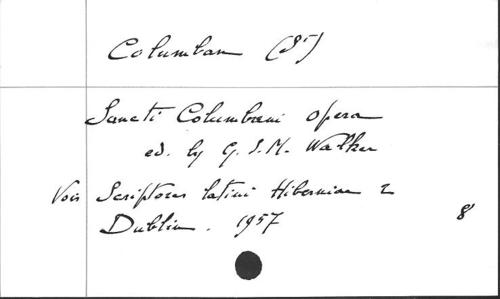 Columban (St)
Sancti Columbani opera
ed. by G. S. M. Walker
Voir Scriptores latini Hiberniae 2
Dublin. 1957
8